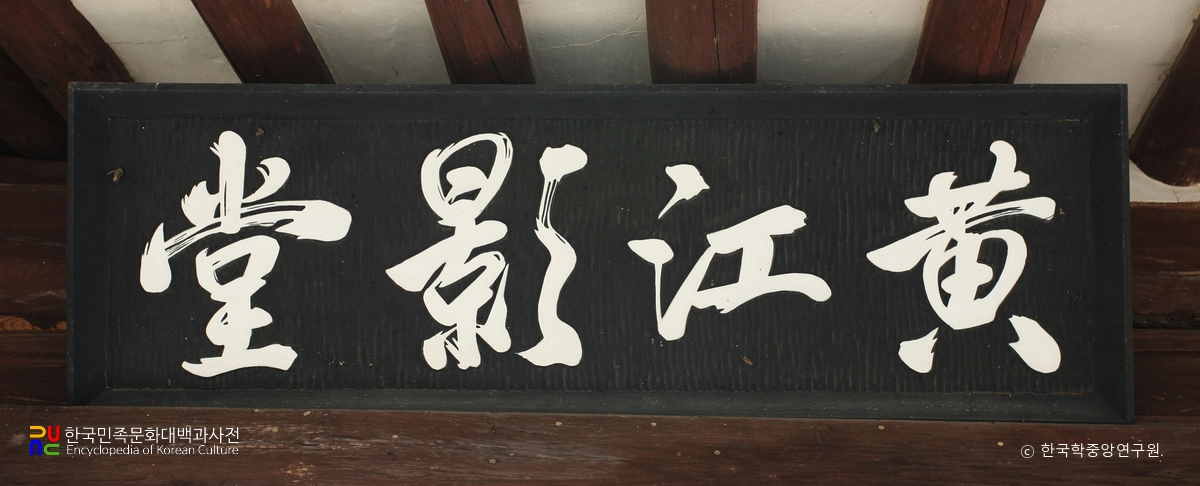 黄江影堂
한국민족문화대백과사전
Encyclopedia of Korean Culture
ⓒ 한국학중앙연구원.